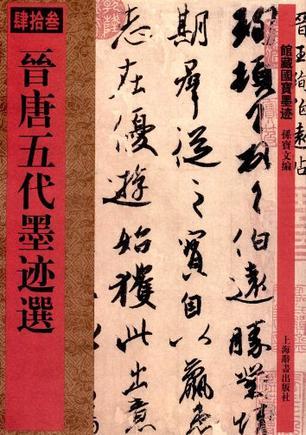 肆拾叁
晉唐五代墨迹選
館藏國寶墨迹
孫寶文編
上海辭書出版社
晉王珣伯遠帖
珣頓首頓首伯遠勝業情
期群從之寶自以羸患
志在優游始獲此出意